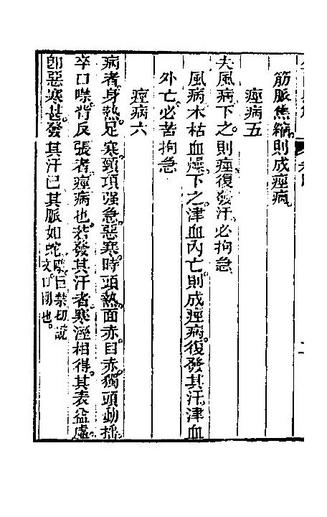 筋脈焦縮則成痙病
痙病五
夫風病下之則痙復發汗必拘急
風病木枯血燥下之津血內亡則成痙病復發其汗津血
外亡必苦拘急
痙病六
病者身熱足寒頸項强急惡寒時頭熱面赤目赤獨頭動摇
卒口噤背反張者痙病也若發其汗者寒溼相得其表益虛
卽惡寒甚發其汗已其脈如蛇